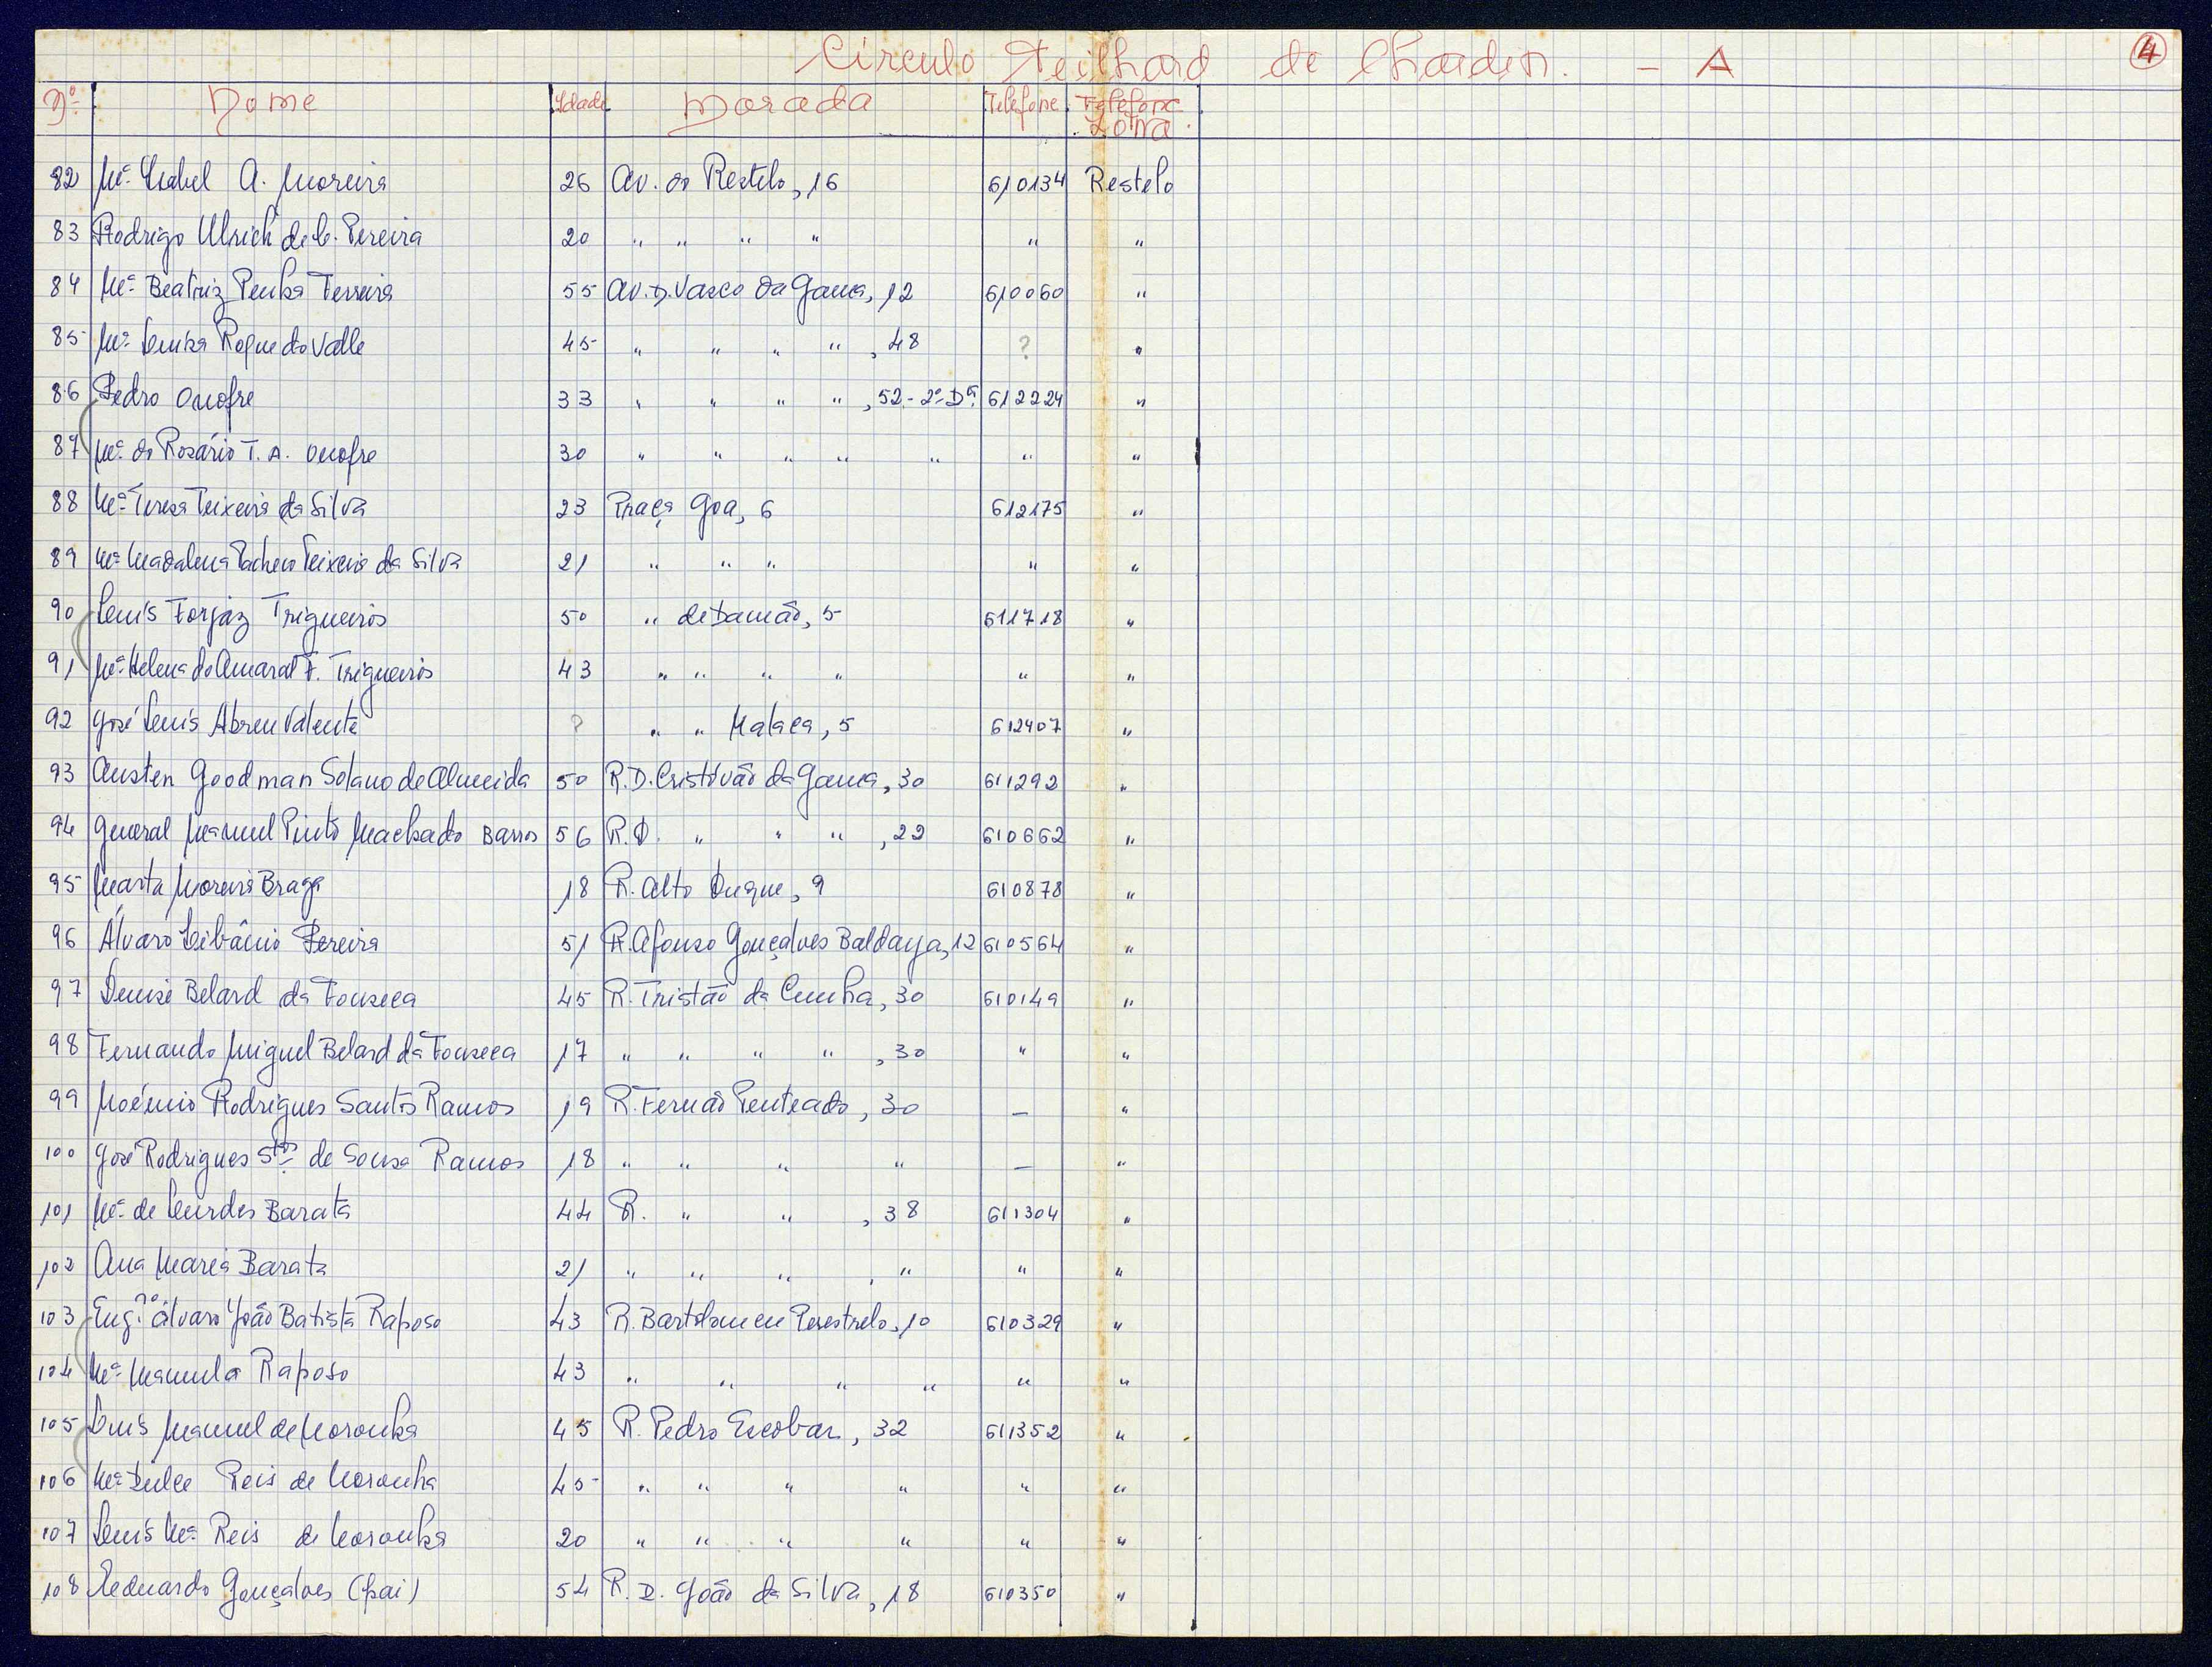 Círculo Teilhard de Chardin. - A 4
Nº Nome Idade Morada Telefone Telefone Zona
82 Mª Isabel A. Moreira 26 Av. do Restelo, 16 610134 Restelo
83 Rodrigo Ulrich de C. Pereira 20 " " " " " "
84 Mª Beatriz Penha Ferreira 55 Av. D. Vasco da Gama, 12 610060 "
85 Mª Luísa Roque do Valle 45 " " " " , 48 ? "
86 Pedro Onofre 33 " " " " , 52 - 2º Dº 612224 "
87 Mª do Rosário T. A. Onofre 30 " " " " " " "
88 Mª Teresa Teixeira da Silva 23 Praça Goa, 6 612175 "
89 Mª Madalena Pacheco Teixeira da Silva 21 " " " " "
90 Luís Forjaz Trigueiros 50 " de Damão, 5 611718 "
91 Mª Helena do Amaral F. Trigueiros 43 " " " " " "
92 José Luís Abreu Valente ? " " Malaca, 5 612407 "
93 Austen Goodman Solano de Almeida 50 R. D. Cristóvão da Gama, 30 611292 "
94 General Manuel Pinto Machado Barros 56 R. D. " " " , 22 610662 "
95 Marta Moreira Braga 18 R. Alto Duque, 9 610878 "
96 Álvaro Libânio Pereira 51 R. Afonso Gonçalves Baldaya, 12 610564 "
97 Denise Belard da Fonseca 45 R. Tristão da Cunha, 30 610149 "
98 Fernando Miguel Belard da Fonseca 17 " " " " , 30 " "
99 Noémio Rodrigues Santos Ramos 19 R. Fernão Penteado, 30 — "
100 José Rodrigues Stos de Sousa Ramos 18 " " " " — "
101 Mª de Lurdes Barata 44 R. " " , 38 611304 "
102 Ana Maria Barata 21 " " " , " " "
103 Eng.º Álvaro João Batista Raposo 43 R. Bartolomeu Perestrelo, 10 610329 "
104 Mª Manuela Raposo 43 " " " " " "
105 Luís Manuel de Noronha 45 R. Pedro Escobar, 32 611352 "
106 Mª Dulce Reis de Noronha 45 " " " " " "
107 Luís Mª Reis de Noronha 20 " " " " " "
108 Leduardo Gonçalves (pai) 54 R. D. João da Silva, 18 610350 "